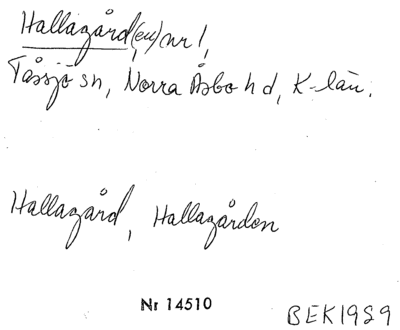 Hallagård(en) nr 1,
Tåssjö sn, Norra Åsbo hd, K-län.
Hallagård, Hallagården
Nr 14510
BEK1989